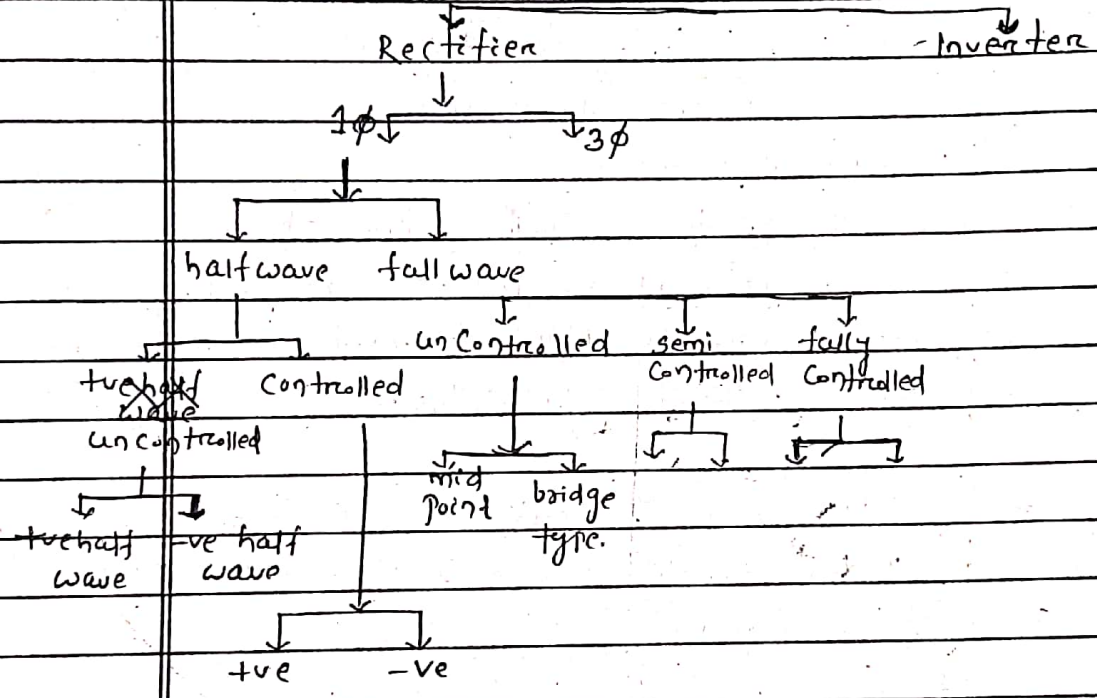 Rectifier
Inverter
1ϕ
3ϕ
halfwave
full wave
unControlled
semi
Controlled
fully
Controlled
+ve half
wave
uncontrolled
Controlled
mid
point
bridge
type.
+ve half
wave
-ve half
wave
+ve
-ve